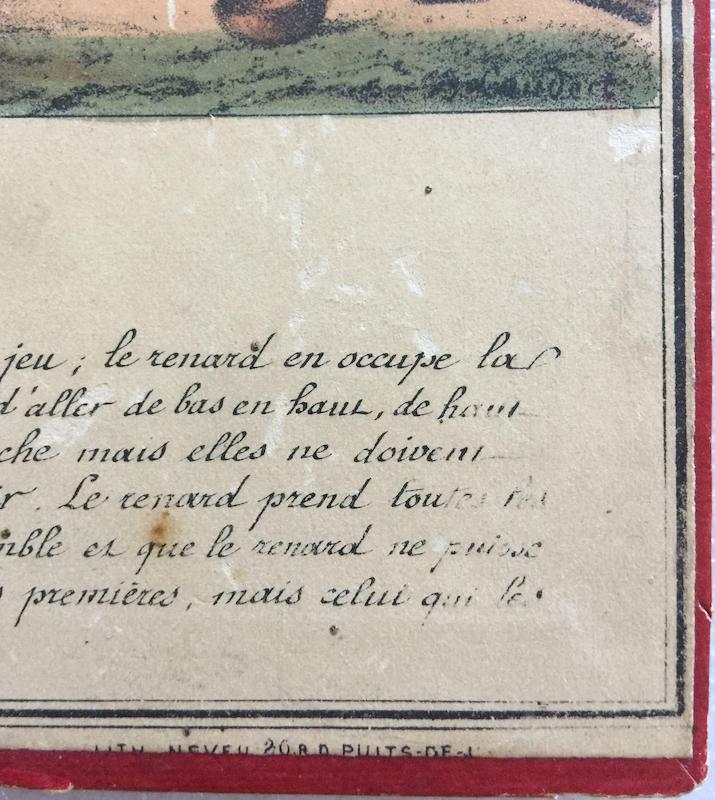 jeu ; le renard en occupe la
d'aller de bas en haut, de haut
che mais elles ne doivent
r. Le renard prend toutes les
mble et que le renard ne puisse
s premières, mais celui qui les
LITH. NEVEU 20, R.D. PUITS-DE-L